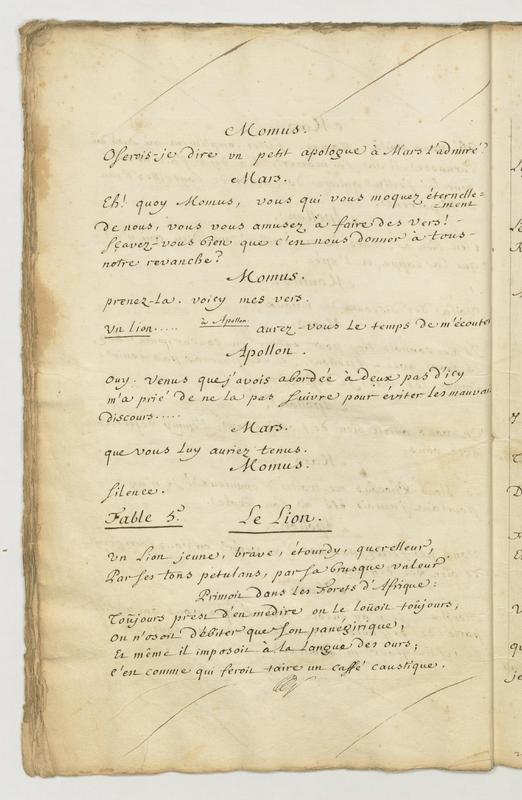 Momus.
Oserois-je dire un petit apologue à Mars l'admiré?
Mars.
Eh! quoy Momus, vous qui vous moquez éternelle=
=ment
de nous, vous vous amusez à faire des vers! -
sçavez-vous bien que c'en nous donner à tous -
notre revanche?
Momus.
prenez-la. voicy mes vers.
Un lion..... à Apollon. aurez-vous le temps de m'écouter
Apollon.
Ouy. Venus que j'avois abordée à deux pas d'icy
m'a prié de ne la pas suivre pour éviter les mauvais
discours.....
Mars.
que vous luy auriez tenus.
Momus.
silence.
Fable 5.e Le Lion.
Un Lion jeune, brave, étourdy, querelleur,
Par ses tons petulans, par sa brusque valeur
Primoit dans les Forets d'Afrique:
Toûjours prest d'en médire on le loüoit toûjours,
On n'osoit débiter que son panégirique,
Et même il imposoit à la Langue des ours;
c'en comme qui feroit taire un caffé caustique.